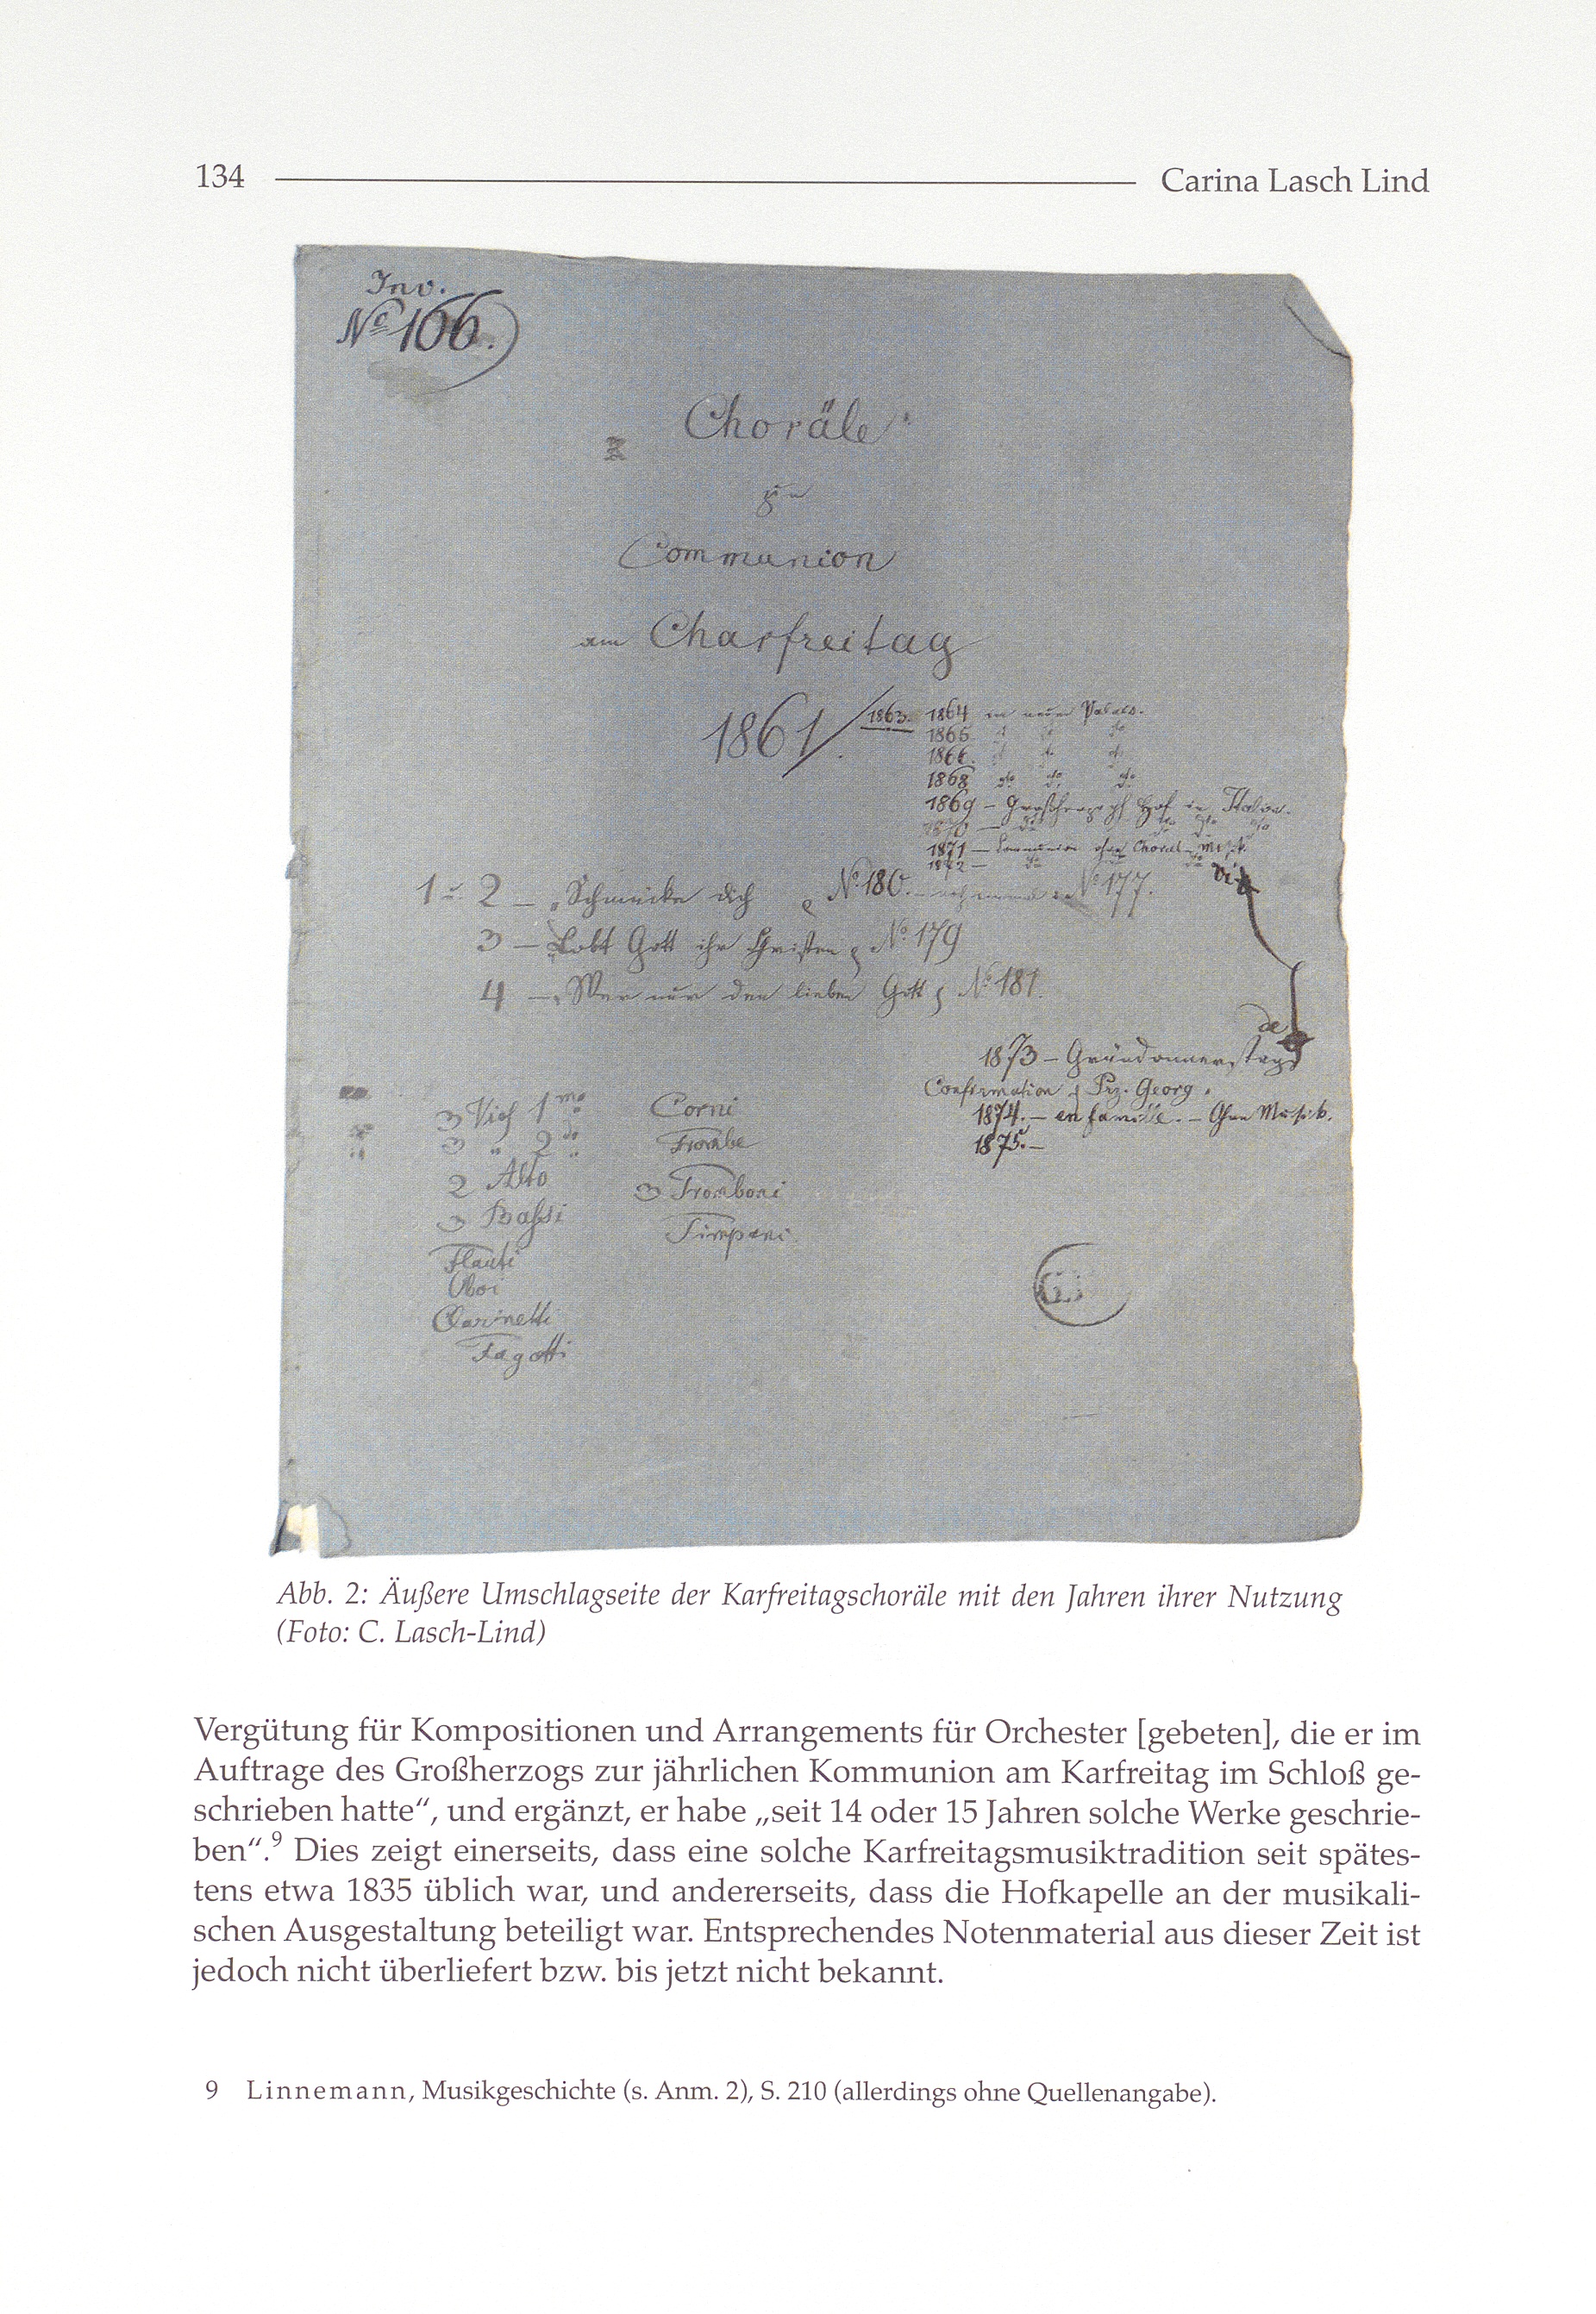 134 Carina Lasch Lind
Inv.
No 106.
Choräle
zu
Communion
am Charfreitag
1861 / 1863. 1864 im neuen Palais.
1865
1866.
1868 do do do
1869 – Großherzogl Hof in Italien.
1870 – do do do
1871 – Communion ohne Choral-Musik
1872 – do do
vi
1 u. 2 – „Schmücke dich No 180. – noch einmal No 177.
3 – „Lobt Gott ihr Christen No 179
4 – „Wer nur den lieben Gott No 181.
de
1873 – Gründonnerstag
Confirmation Prz. Georg.
1874. – en famille. – Ohne Musik.
1875. –
3 Viol 1mo Corni
3 " 2do Trombe
2 Alto 3 Tromboni
3 Bassi Timpani.
Flauti
Oboi
Clarinetti
Fagotti
Abb. 2: Äußere Umschlagseite der Karfreitagschoräle mit den Jahren ihrer Nutzung
(Foto: C. Lasch-Lind)
Vergütung für Kompositionen und Arrangements für Orchester [gebeten], die er im
Auftrage des Großherzogs zur jährlichen Kommunion am Karfreitag im Schloß ge-
schrieben hatte“, und ergänzt, er habe „seit 14 oder 15 Jahren solche Werke geschrie-
ben“.9 Dies zeigt einerseits, dass eine solche Karfreitagsmusiktradition seit spätes-
tens etwa 1835 üblich war, und andererseits, dass die Hofkapelle an der musikali-
schen Ausgestaltung beteiligt war. Entsprechendes Notenmaterial aus dieser Zeit ist
jedoch nicht überliefert bzw. bis jetzt nicht bekannt.
9 Linnemann, Musikgeschichte (s. Anm. 2), S. 210 (allerdings ohne Quellenangabe).